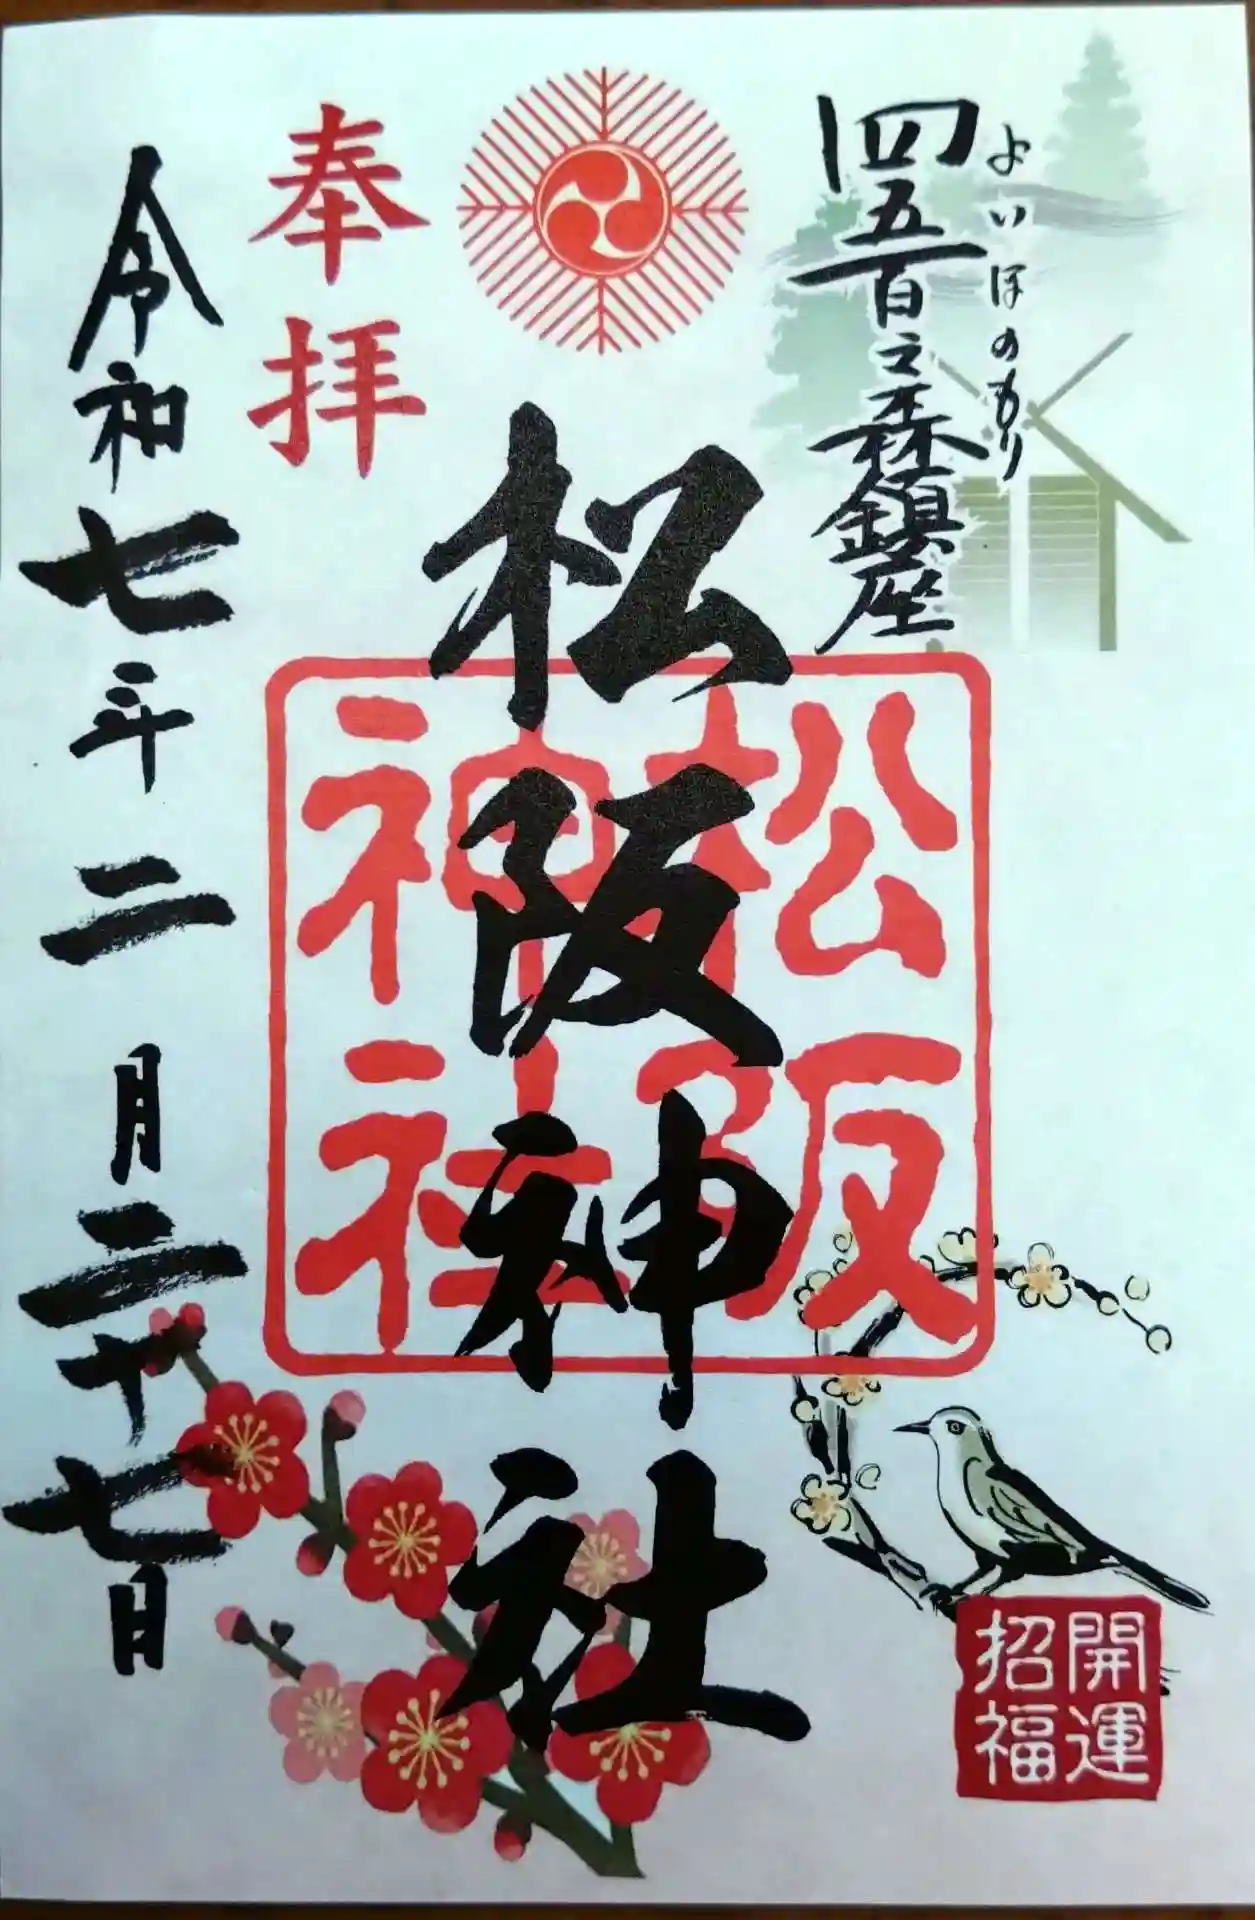 四五百之森鎮座
よいほのもり
松阪神社
奉拝
令和七年二月二十七日
松阪
神社
開運
招福